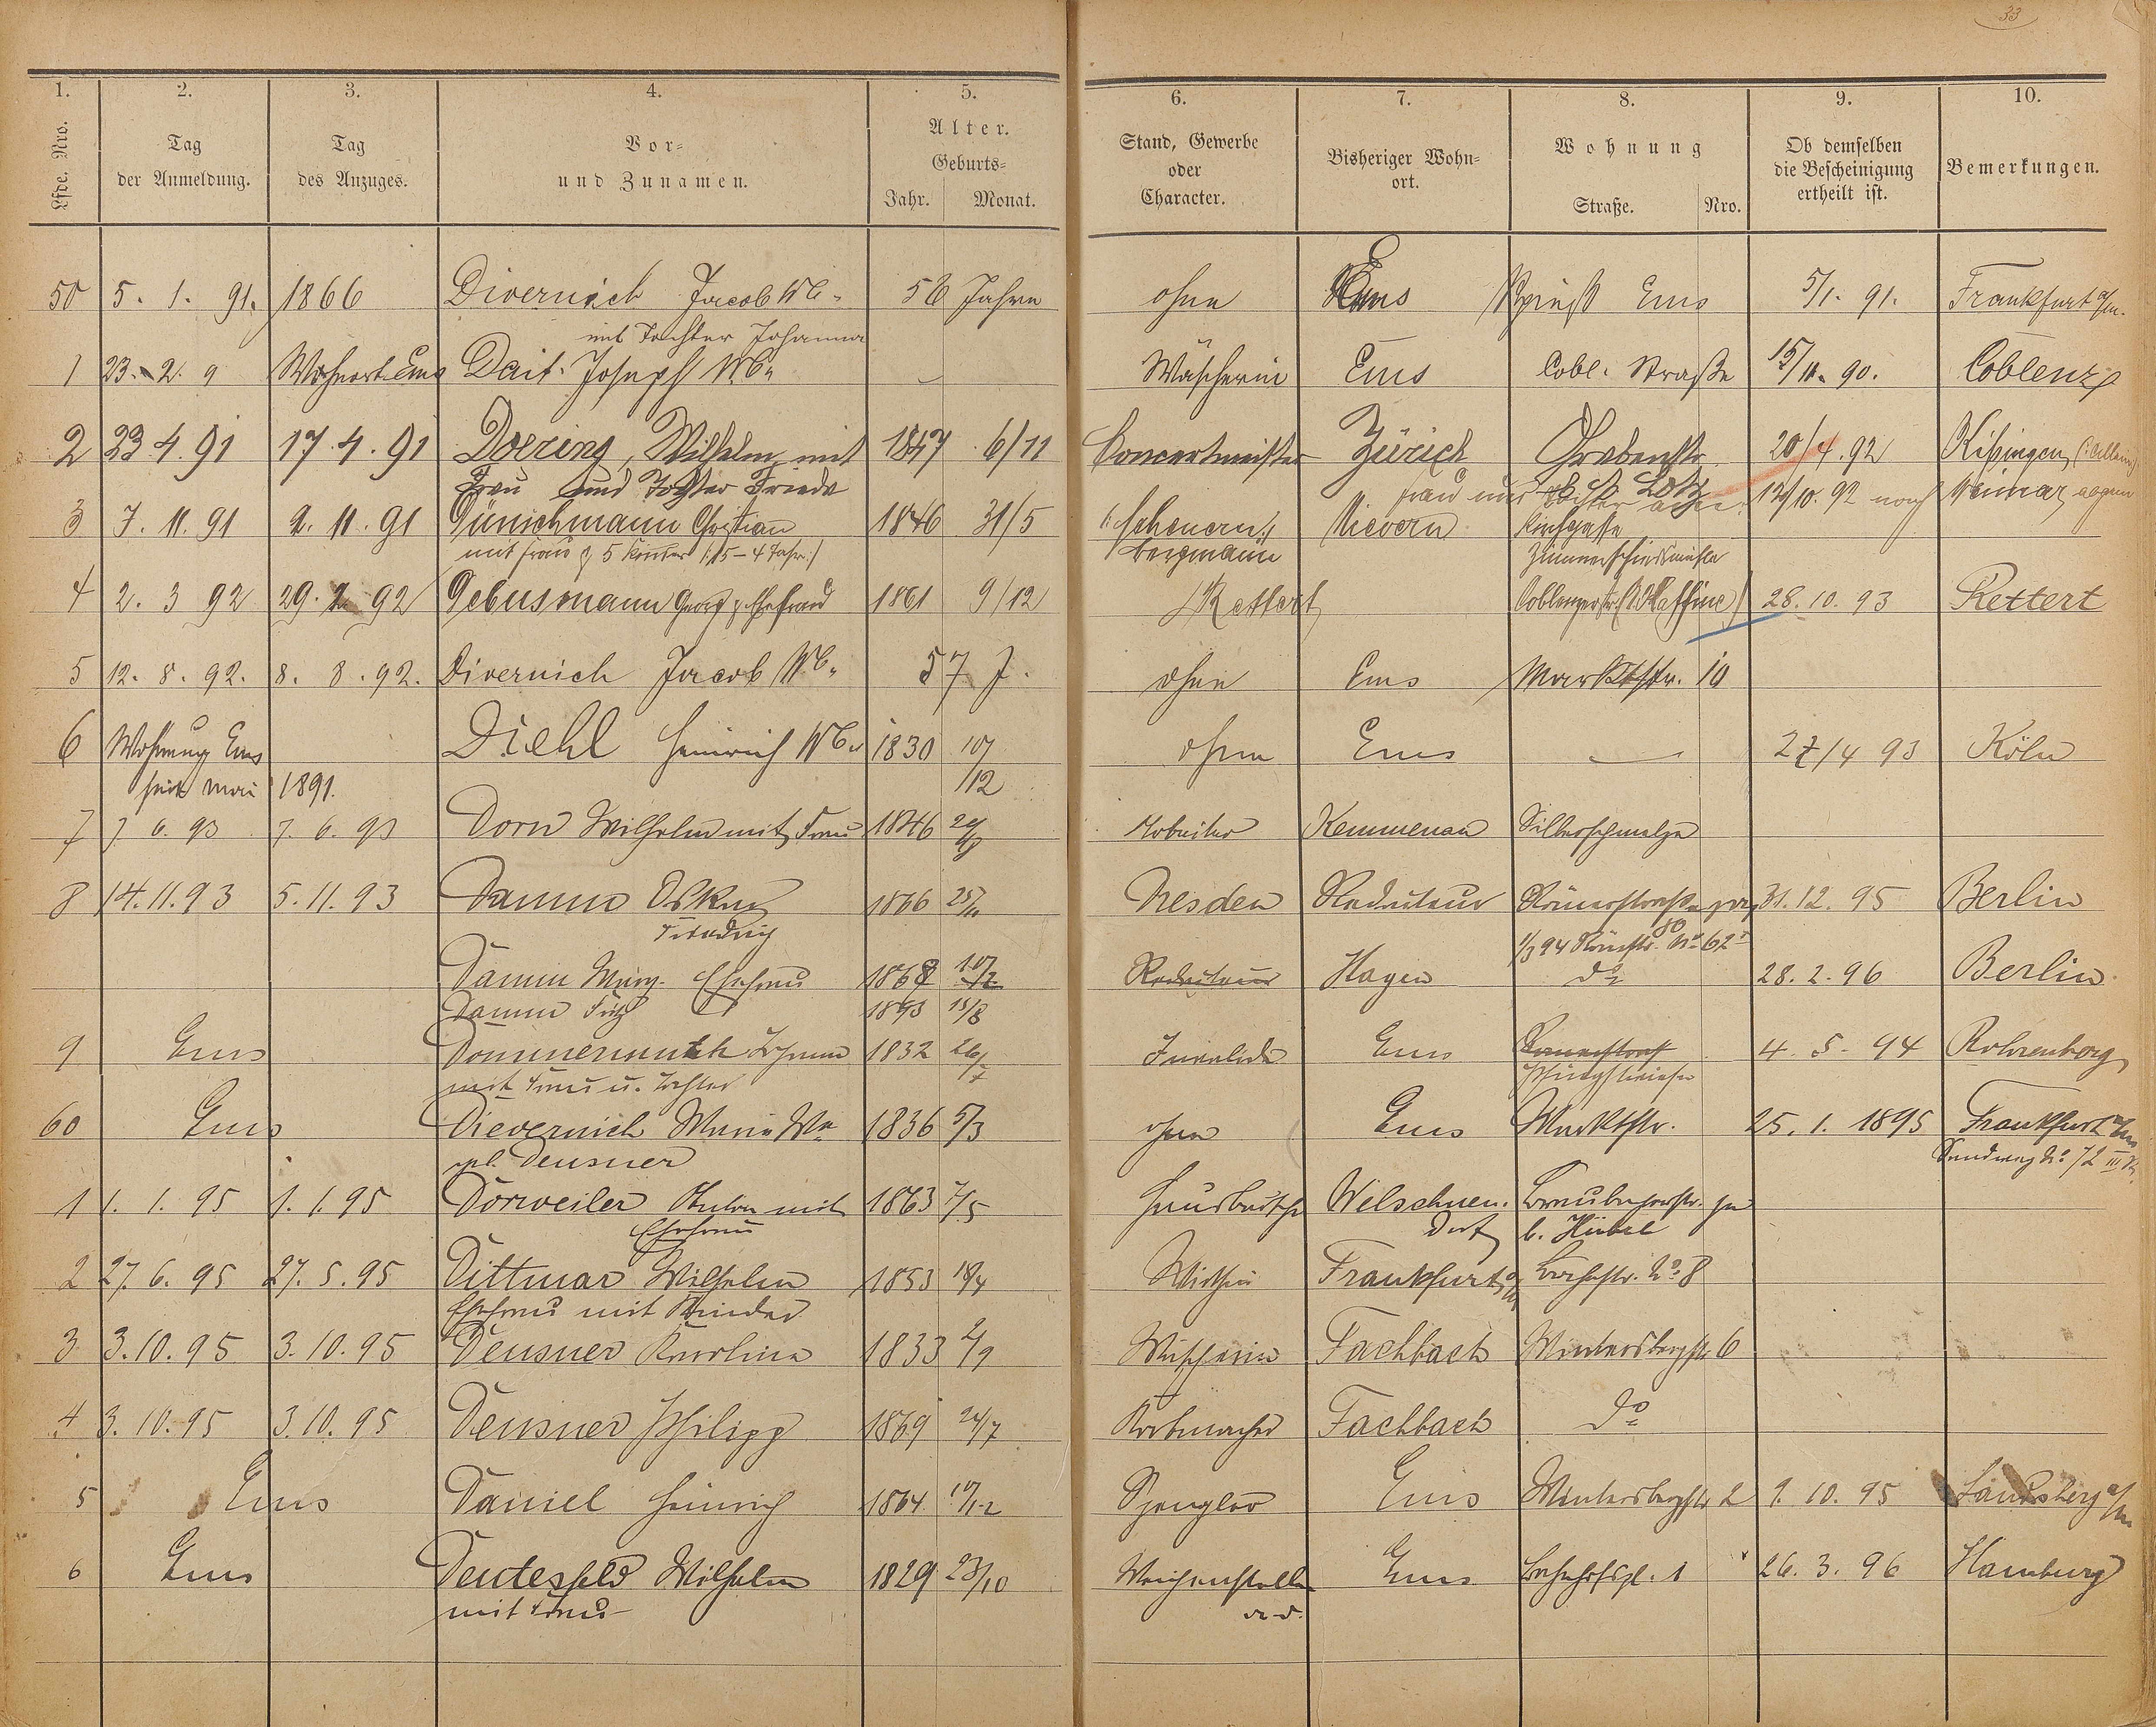 33
1. 2. 3. 4. 5. 6. 7. 8. 9. 10.
Lfde. Nro. Tag der Anmeldung. Tag des Anzuges. Vor- und Zunamen. Alter. Geburts- Jahr. Monat. Stand, Gewerbe oder Character. Bisheriger Wohn- ort. Wohnung Straße. Nro. Ob demselben die Bescheinigung ertheilt ist. Bemerkungen.
50 5. 1. 91. 1866 Divernich Jacob Wb. 56 Jahre ohne Ems Ems 5/1. 91. Frankfurt a/m.
mit Tochter Johanna
1 23. 2. 9 Wohnort Ems Dait. Joseph Wb. Wäscherin Ems Cobl. Straße 15/11. 90. Coblenz
2 23 4. 91 17. 4. 91 Doering, Wilhelm mit 1847 6/11 Concertmeister Zürich Grabenstr. 20/4. 92 Kißingen (: allein)
Frau und Tochter Friede Frau und Tochter 12/10. 92 nach Weimar
3 7. 11. 91 2. 11. 91 Dünschmann Christian 1846 31/5 Nievern Kirchgasse
mit Frau & 5 Kinder (: 15 – 4 Jahr :) Bergmann
4 2. 3 92 29. 2. 92 Debusmann Georg & Ehefrau 1861 9/12 Rettert Coblenzerstr. 28. 10. 93 Rettert
5 12. 8. 92. 8. 8. 92. Divernich Jacob Wb. 57 J. ohne Ems Marktstr. 10
6 Wohnung Ems Diehl Heinrich Wb. 1830 10/12 ohne Ems — 27/4 93 Köln
seit Mai 1891.
7 7. 6. 93 7. 6. 93 Dorn Wilhelm mit Frau 1846 Arbeiter Kemmenau Silberschmelze
8 14. 11. 93 5. 11. 93 Damm Oskar 1866 25/10 Dresden Redacteur Römerstraße 31. 12. 95 Berlin
Friedrich 1/3 94 Römerstr. No 62
Damm Marg. Ehefrau 1868 Redacteur Hagen do 28. 2. 96 Berlin
Damm Fritz 1893 15/8
9 Ems Dommermuth Johann 1832 Invalide Ems 4. 5. 94 Rohrenborg
mit Frau u. Tochter Pfingstwiese
60 Ems Dievernich Maria Ww. 1836 5/3 ohne Ems Marktstr. 25. 1. 1895 Frankfurt a/m
gb. Deusner Sandweg No 72 III
1 1. 1. 95 1. 1. 95 Dorweiler Anton mit 1863 7/5 Hausbursche Welschneu. Braubacherstr.
Ehefrau dorf b. Hübel
2 27. 6. 95 27. 5. 95 Dittmar Wilhelm 1853 18/4 Wirthin Frankfurt a/M No 8
Ehefrau mit Kinder
3 3. 10. 95 3. 10. 95 Deusner Karolina 1833 2/9 Wäscherin Fachbach Wintersbergstr. 6
4 3. 10. 95 3. 10. 95 Deusner Philipp 1869 24/7 Korbmacher Fachbach do
5 Ems Daniel Heinrich 1864 10/12 Spengler Ems Wintersbergstr. 2 9. 10. 95 Landsberg a/m
6 Ems Deutesfeld Wilhelm 1829 23/10 Weichensteller Ems Bahnhofspl. 1 26. 3. 96 Hamburg
mit Frau a. d.